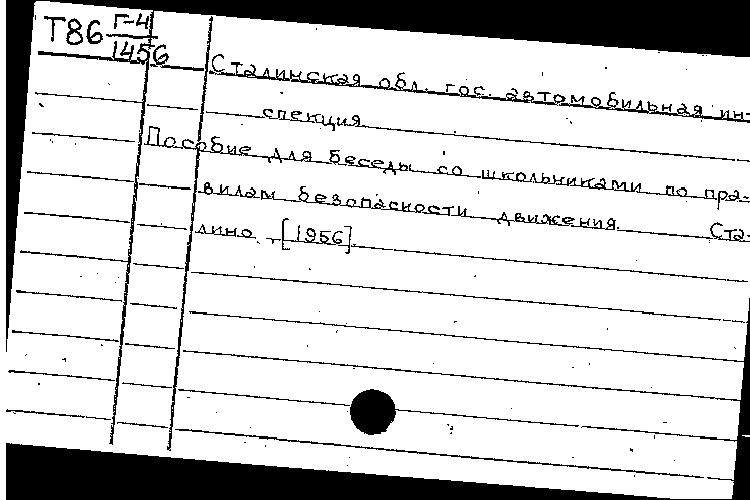 Т86 Г-4
1456
Сталинская обл. гос. автомобильная ин-
спекция.
Пособие для беседы со школьниками по пра-
вилам безопасности движения. Ста-
лино, [1956].